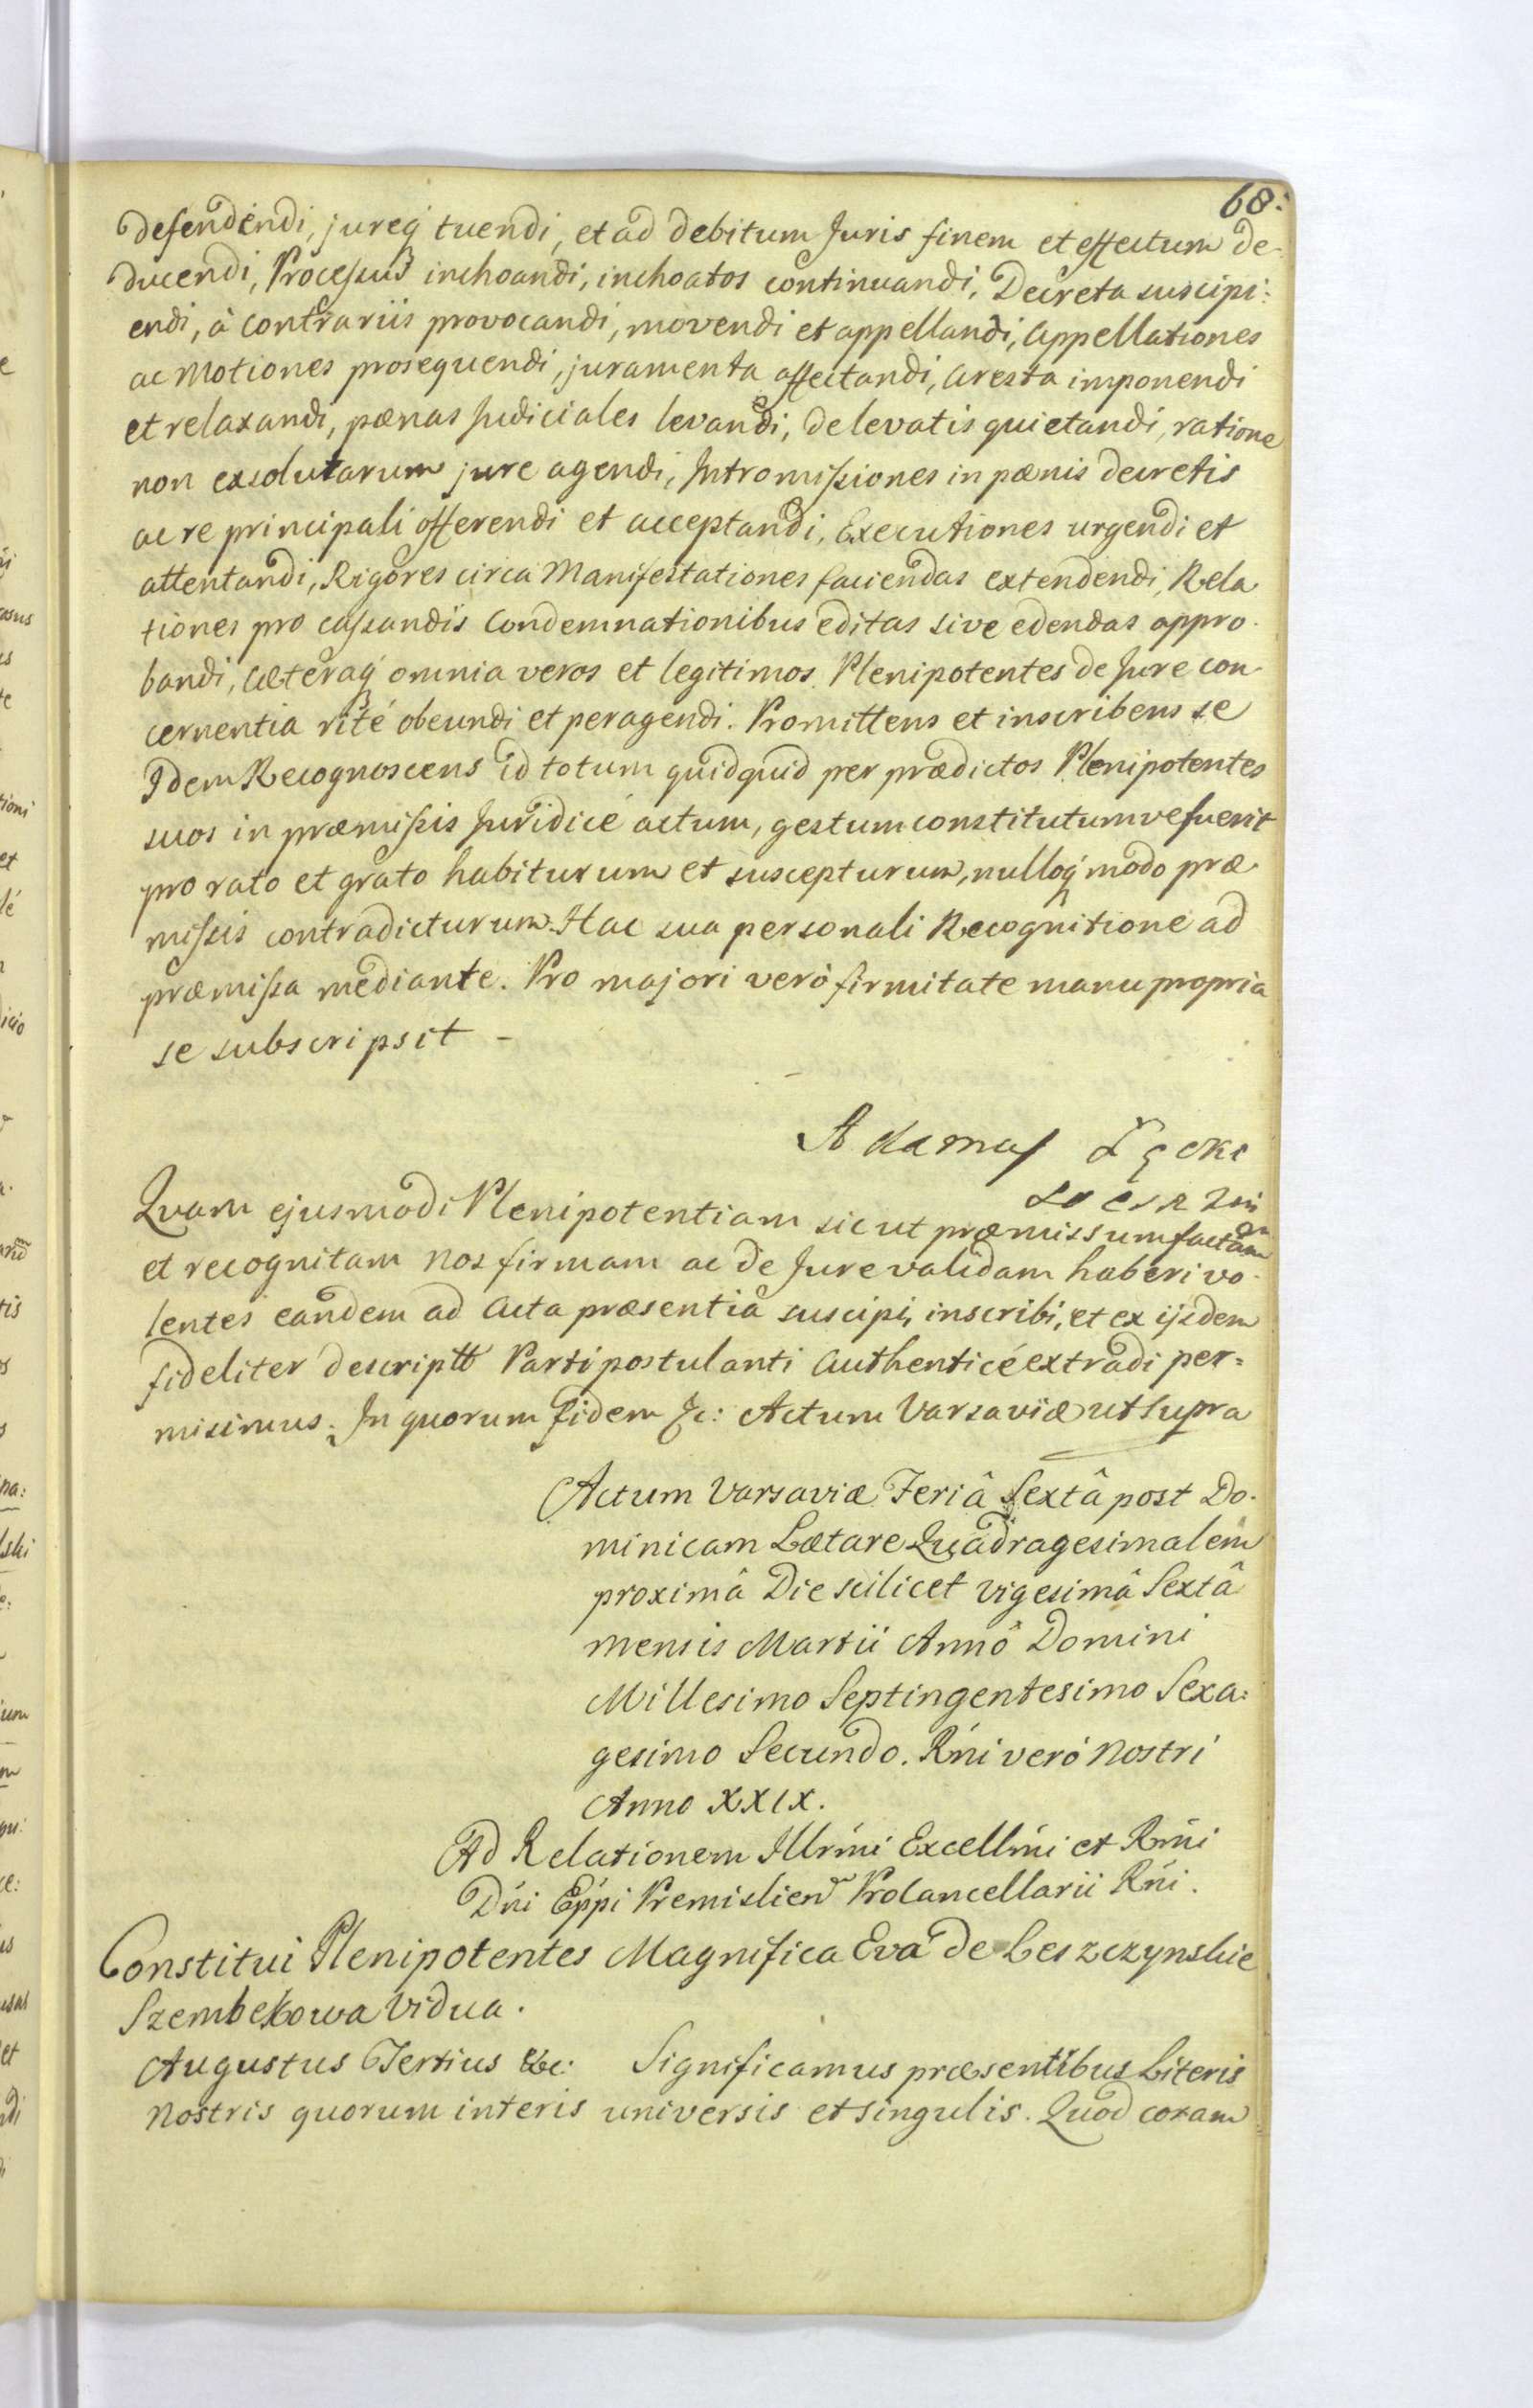 68.
defendendi, jureq́ tuendi, et ad debitum Juris finem et effectum de-
ducendi, Processus inchoandi, inchoatos continuandi, Decreta suscipi:
endi, à Contrariis provocandi, movendi et appellandi, Appellationes
ac Motiones prosequendi, juramenta affectandi, Aresta imponendi
et relaxandi, pœnas Judiciales levandi, de levatis quietandi, ratione
non exsolutarum jure agendi, Intromissiones in pœnis decretis
ac re principali offerendi et acceptandi, Executiones urgendi et
attentandi, Rigores circa Manifestationes faciendas extendendi, Rela
tiones pro cassandis Condemnationibus editas sive edendas appro-
bandi, Cæteraq́ omnia veros et legitimos Plenipotentes de Jure con-
cernentia rité obeundi et peragendi. Promittens et inscribens se
Idem Recognoscens id totum quidquid per prædictos Plenipotentes
suos in præmissis Juridicé actum, gestum constitutumve fuerit
pro rato et grato habiturum et suscepturum, nulloq́ modo præ-
missis contradicturum. Hac sua personali Recognitione ad
præmissa mediante. Pro majori verò firmitate manu propria
se subscripsit -
Adamus Łęcki
Quam ejusmodi Plenipotentiam sicut præmissum factam
et recognitam Nos firmam ac de Jure validam haberi vo-
lentes eandem ad Acta præsentia suscipi, inscribi, et ex ijsdem
fideliter descriptt Parti postulanti Authenticé extradi per=
misimus. In quorum fidem &c: Actum Varsaviæ ut supra
Actum Varsaviæ Feriâ Sextâ post Do-
minicam Lætare Quadragesimalem
proximâ Die scilicet vigesimâ Sextâ
mensis Martii Annô Domini
Millesimo Septingentesimo Sexa=
gesimo Secundo. Rńi veró Nostri
Anno XXIX.
Ad Relationem Illrmi Excellmi et Rmi
Dńi Eppi Premislien Procancellarii Rńi.
Constitui Plenipotentes Magnifica Eva de Leszczynskie
Szembekowa Vidua.
Augustus Tertius &c: Significamus præsentibus Literis
Nostris quorum interis universis et singulis. Quod coram